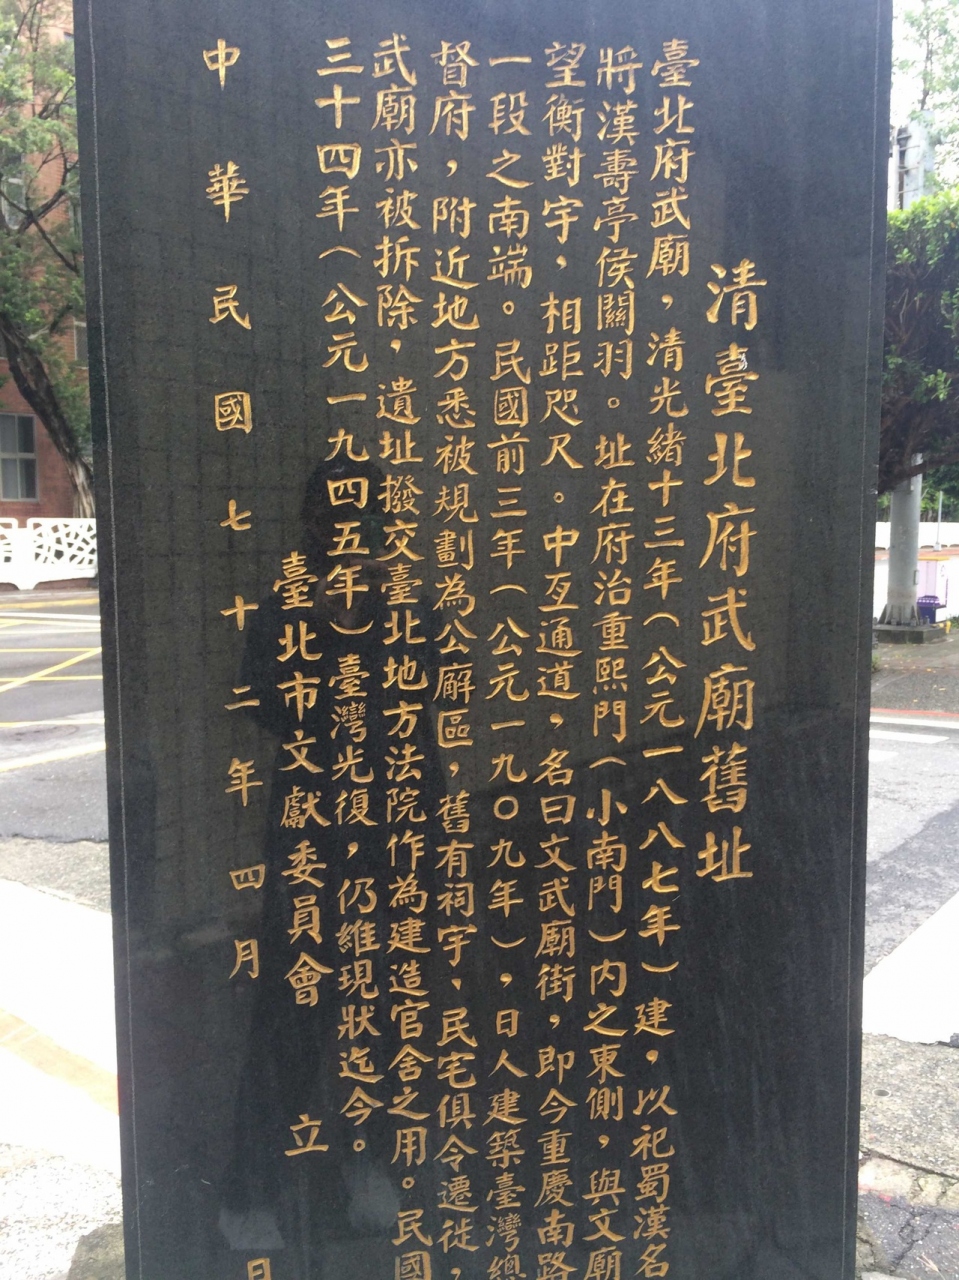 清臺北府武廟舊址
臺北府武廟，清光緒十三年（公元一八八七年）建，以祀蜀漢名
將漢壽亭侯關羽。址在府治重熙門（小南門）內之東側，與文廟
望衡對宇，相距咫尺。中亙通道，名曰文武廟街，即今重慶南路
一段之南端。民國前三年（公元一九〇九年），日人建築臺灣總
督府，附近地方悉被規劃為公廨區，舊有祠宇、民宅俱令遷徙，
武廟亦被拆除，遺址撥交臺北地方法院作為建造官舍之用。民國
三十四年（公元一九四五年）臺灣光復，仍維現狀迄今。
臺北市文獻委員會 立
中華民國七十二年四月 日